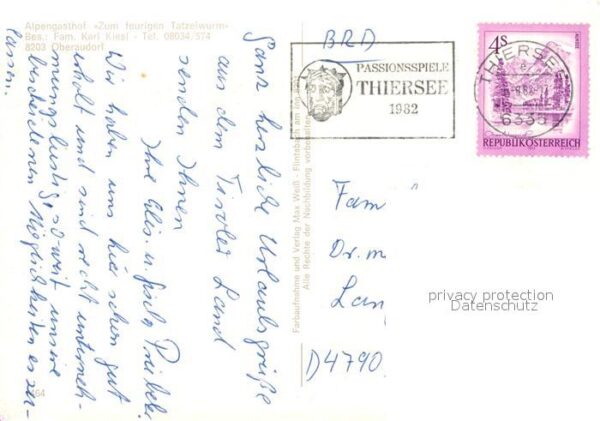 Alpengasthof »Zum feurigen Tatzelwurm«
Bes.: Fam. Karl Kiesl - Tel. 08034/374
8203 Oberaudorf
Ganz herzliche Urlaubsgrüße
aus dem Tiroler Land
senden Ihnen
Ihre Elis. u.
Wir haben uns hier schon gut
erholt und sind recht unterneh-
mungslustig, soweit unsere
bescheidenen Möglichkeiten es zu-
lassen.
Farbaufnahme und Verlag Max Weiß - Flintsbach am Inn
Alle Rechte der Nachbildung vorbehalten
BRD
PASSIONSSPIELE
THIERSEE
1982
4S
THIERSEE
6335
REPUBLIK ÖSTERREICH
Fam
Dr. m
Lan
D4790
privacy protection
Datenschutz